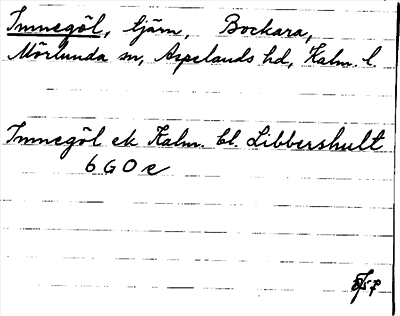 Immegöl, tjärn, Bockara,
Mörlunda sn, Aspelands hd, Kalm. l.
Immegöl ek Kalm. bl. Libbershult
6 G O e